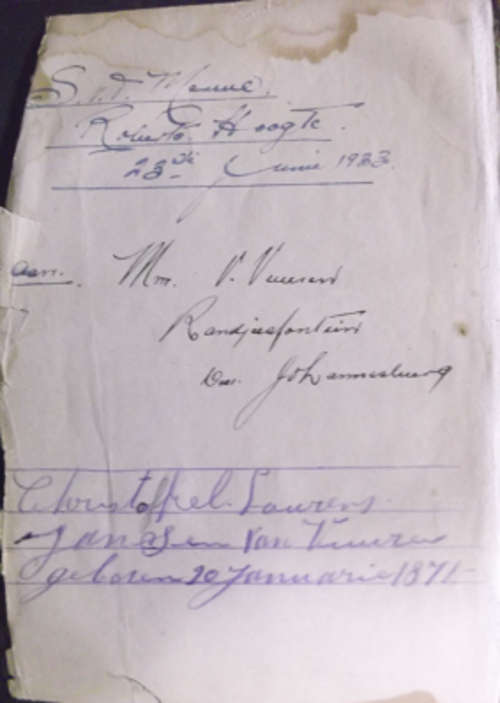 S. v.d. Merwe.
Roberts Hoogte.
23ste Junie 1933.
aan. Mnr. V. Vuuren
Randjesfontein
Dis. Johannesburg
Christoffel Lourens
Jansen van Vuuren
geboren 20 Januarie 1871